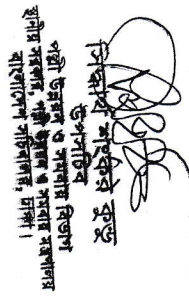 উপসচিব
পল্লী উন্নয়ন ও সমবায় বিভাগ
স্থানীয় সরকার, পল্লী উন্নয়ন ও সমবায় মন্ত্রণালয়
বাংলাদেশ সচিবালয়, ঢাকা।